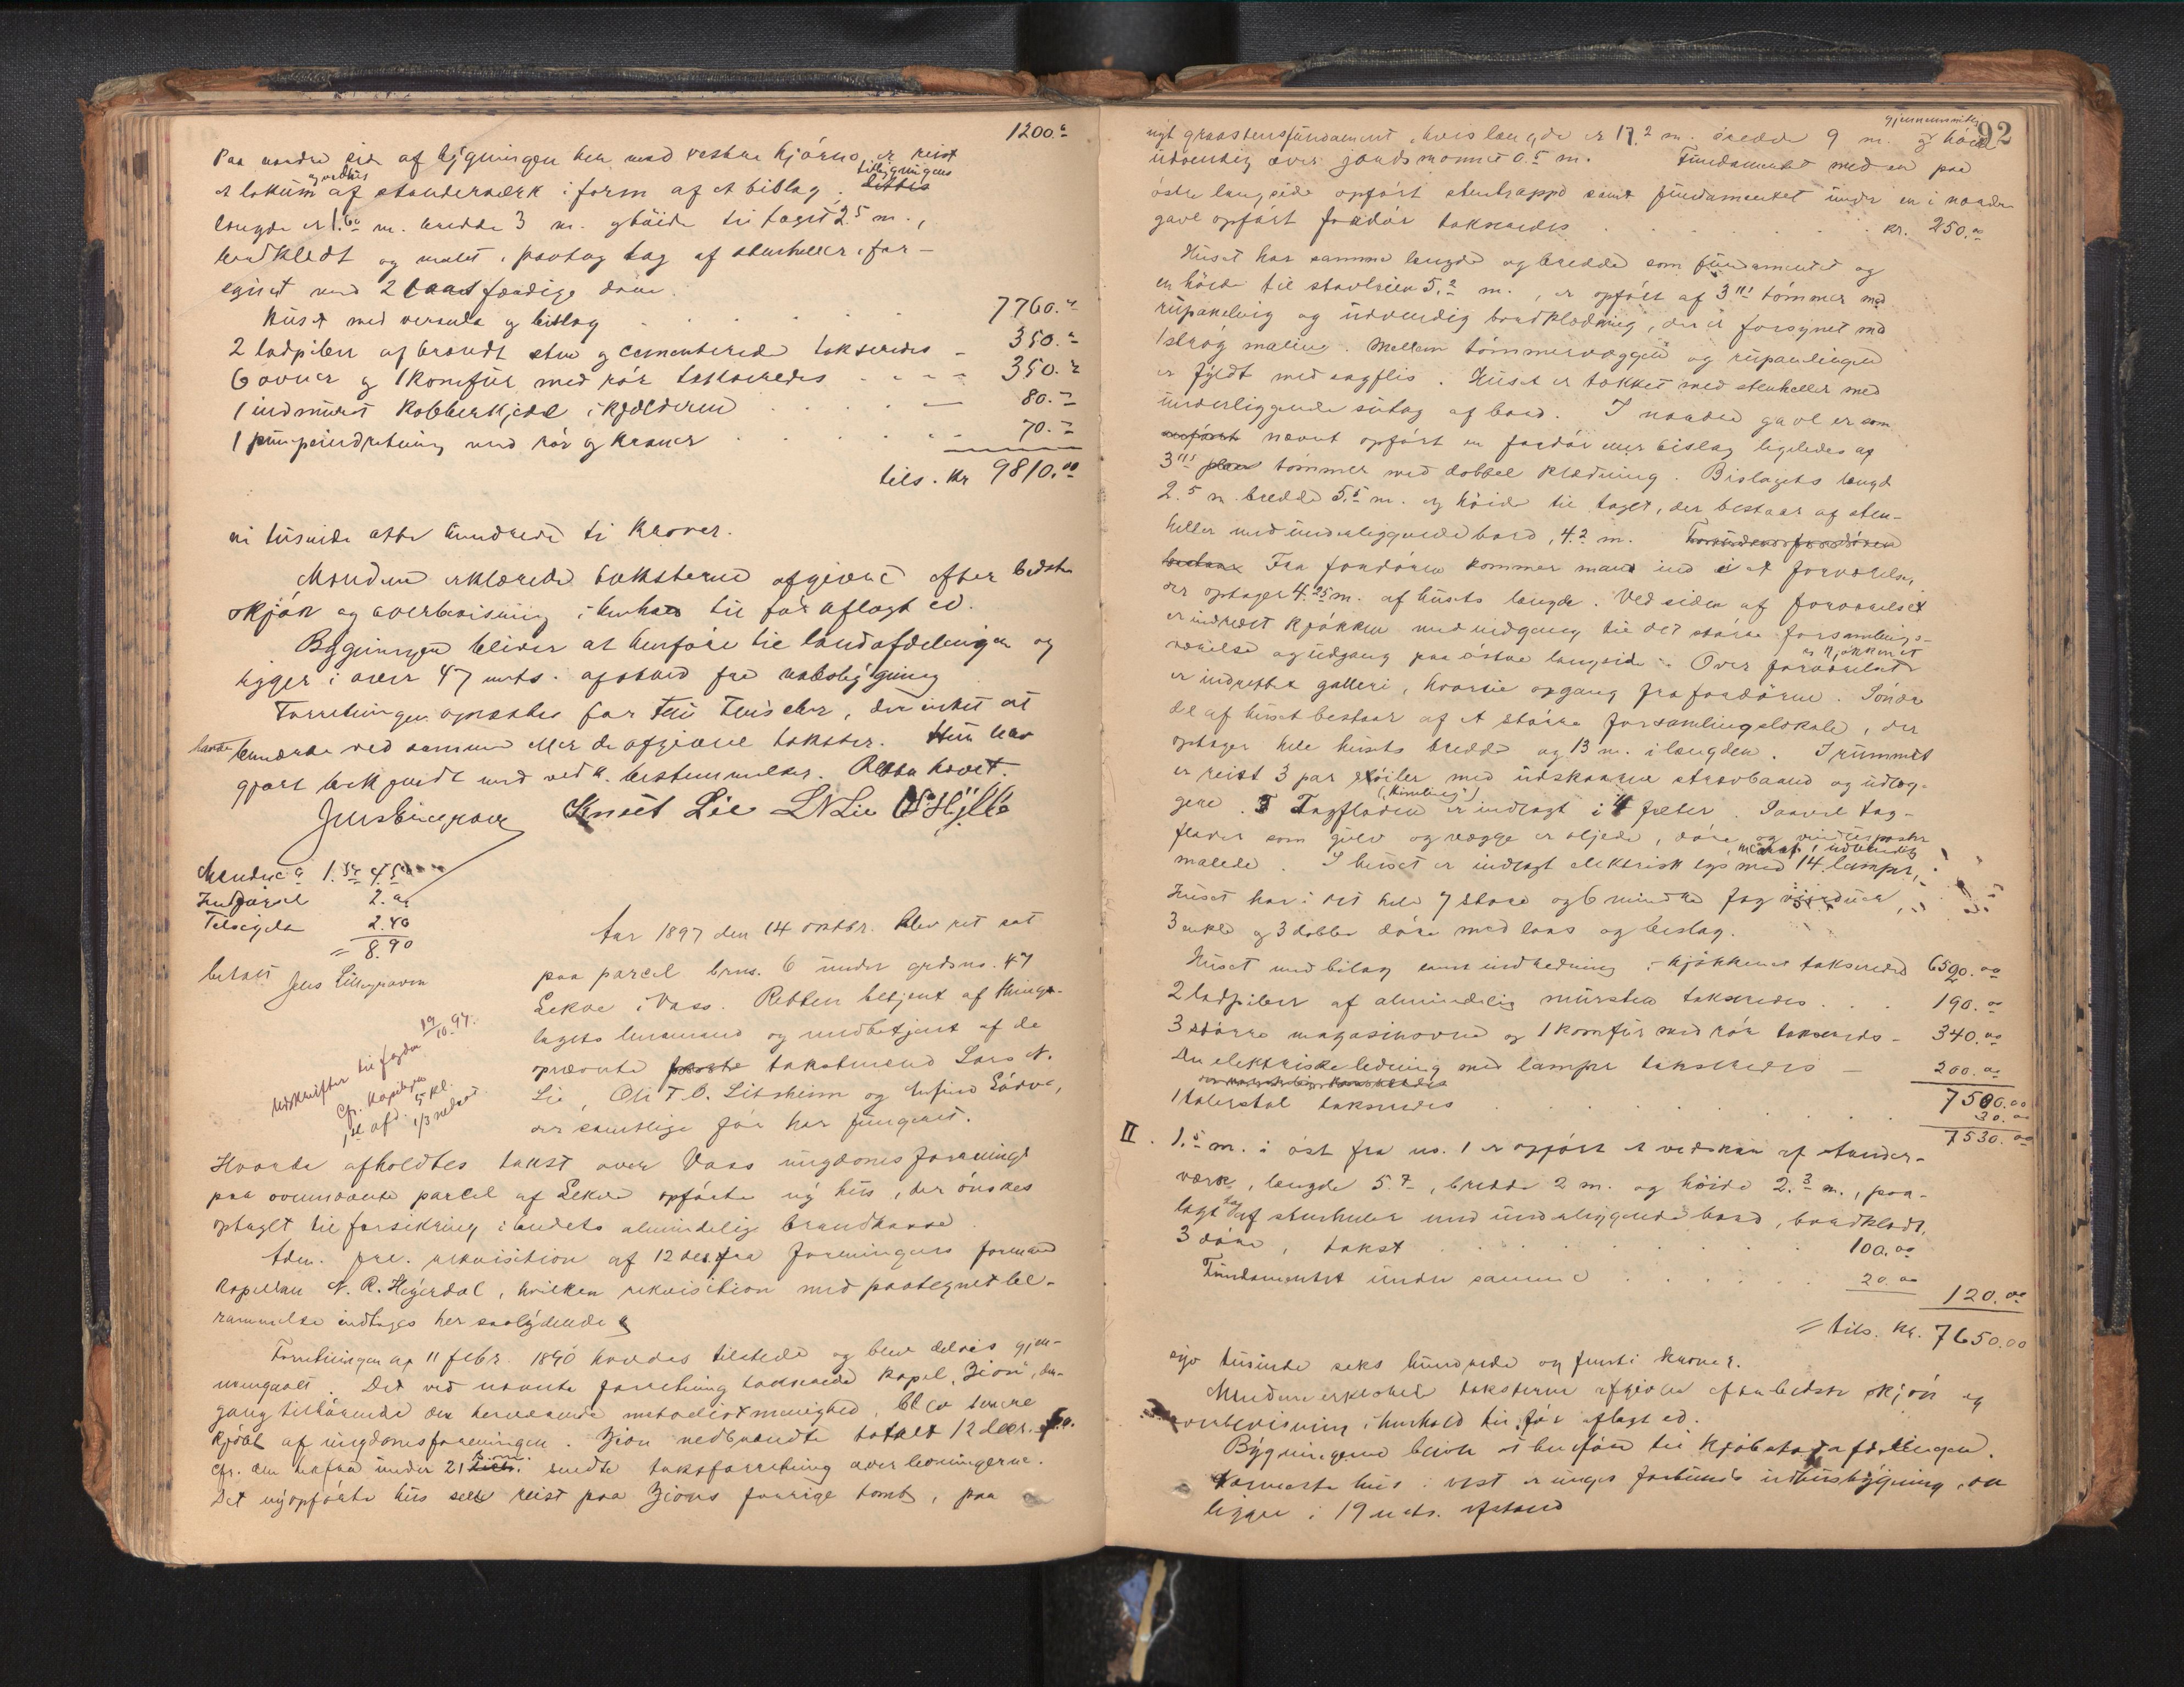 1200.
Paa nordre side af bygningen hen mod vestre hjørne, er reist
et lokum og vedhus af stenderværk i form af et bislag. Tilbyggningens
længde er 1.60 m. bredde 3 m. og høide til taget 2.5 m.,
bordklædt og malet, paalag tag af stenheller, for-
synet med 2 færdige døre.
Huset med veranda og bislag . . . 7760.
2 ladpiber af brændt sten og cementerede takseredes - 350.
6 ovner og 1 komfür med rør takseredes - - - 350.
1 indmuret kobberkjedel i kjelderen - 80.-
1 pumpeindretning med rør og kraner - - 70.-
tils. kr 9810.00
ni tusinde otte hundrede ti kroner.
Mændene erklærede taksterne afgivne efter bedste
skjøn og overbevisning i henhold til før aflagt ed.
Bygningen bliver at henføre til landafdelingen og
ligger i over 47 mets. afstand fra nabobygning
Forretningen oplæstes for , der intet at
havde bemærke ved samme eller de afgivne takster. Hun blev
gjort bekjendt med ved k. bestemmelser. Retten hævet.
Knut Lie L N Lie O Hylle
Mændene a 1.50 4.50
Indførsel 2.00
2.40
= 8.90
betalt
Jens Lillegraven
Udskrifter til fogden 19/10.97.
Cfr. Kapitlynn
1ste afd. 5 kl.
1/3 nedsat.
Aar 1897 den 14 oktbr. blev ret sat
paa parcel brns. 6 under grdsno. 47
Lekve i Voss. Retten betjent af thing-
lagets lensmand og medbetjent af de
opnævnte takstmænd Lars N.
Lie, Ole T. O. Litsheim og Anfind Lødve,
der samtlige før har fungeret.
Hvorda afholdtes takst over Voss ungdomsforenings
paa ovennævnte parcel af Lekve opførte ny hus, der ønskes
optaget til forsikring i landets almindelige brandkasse.
Adm. fre. rekvisition af 12 des. fra foreningens formand
kapellan N. R. Høyerdal, hvilken rekvisition med paategnet be-
rammelse indtages her saalydende
Forretningen af 11 febr. 1890 havdes tilstede og blev delvis gjen-
nemgaaet. Det ved nævnte forretning takserede kapel "Zion", den-
gang tilhørende den herværende metodistmenighed, blev senere
kjøbt af ungdomsforeningen. Zion nedbrændte totalt 12 decr.
cfr. den herfra under 21 s.m. sendte taksforretning over levningerne.
Det nyopførte hus er reist paa Zions forrige tomt, paa
92
nyt graastensfundament, hvis længde er 17.2 m. bredde 9 m. og gjennemsnitlig høide
udvendig over jordsmonnet 0.5 m. Fundamentet med en paa
østre langside opført stentrappe samt fundamentet under en i nordre
gavl opført fordør takseredes . . . kr. 250.00
Huset har samme længde og bredde som fundamentet og
en høide til stavleien 5.2 m., er opført af 3" tømmer med
rupaneling og udvendig bordklædning, der er forsynet med
1 strøg maling. Mellem tømmervæggen og rupanelingen
er fyldt med sagflis. Huset er tækket med stenheller med
underliggende sutag af bord. I nordre gavl er som
nævnt opført en fordør eller bislag ligeledes af
3" tømmer med dobbel klædning. Bislagets længde
2.5 m. bredde 5.5 m. og høide til taget, der bestaar af sten-
heller med underliggende bord, 4.2 m.
Fra fordøren kommer man ind i et forværelse,
der optager 4.25 m. af husets længde. Ved siden af forværelset
er indredet kjøkken med indgang til det større forsamlings-
værelse og udgang paa østre langside. Over forværelset og kjøkkenet
er indrettet galleri, hvortil opgang fra fordøren. Søndre
del af huset bestaar af et større forsamlingslokale, der
optager hele husets bredde og 13 m. i længden. I rummet
er reist 3 par søiler med udskaarne strævbaand og udlæg-
gere. Tagfladen ("himling") er indlagt i 4 felter. Saavel tag-
flader som gulv og vægge er oljede, døre og vinduesposter
malede. I huset er indlagt elektrisk lys med 14 lamper,
Huset har i det hele 7 store og 6 mindre fag vinduer,
3 enkle og 3 doble døre med laas og beslag.
Huset med bislag samt indredning i kjøkkenet takseredes 6520.00
2 ladpiber af almindelig mursten takseredes . . . 190.00
3 større magasinovne og 1 komfür med rør takseredes - 340.00
Den elektriske ledning med lamper takseredes - 200.00
7500.00
1 talerstol takseredes . . . 30.00
7530.00
II. 1.5 m. i øst fra no. 1 er opført et vedskur af stender-
værk, længde 5.7, bredde 2 m. og høide 2.3 m., paa-
lagt tag af stenheller med underliggende bord, bordklædt,
3 døre, takst . . . 100.00
Fundamentet under samme . . . 20.00
120.00
= tils. kr. 7650.00
syv tusinde seks hundrede og femti kroner.
Mændene erklærede taksterne afgivne efter bedste skjøn og
overbevisning i henhold til før aflagt ed.
Bygningerne bliver at henføre til kjøbstadafdelingen.
Nærmeste hus i vest er unges forbunds udhusbygning, der
ligger i 19 mets. afstand